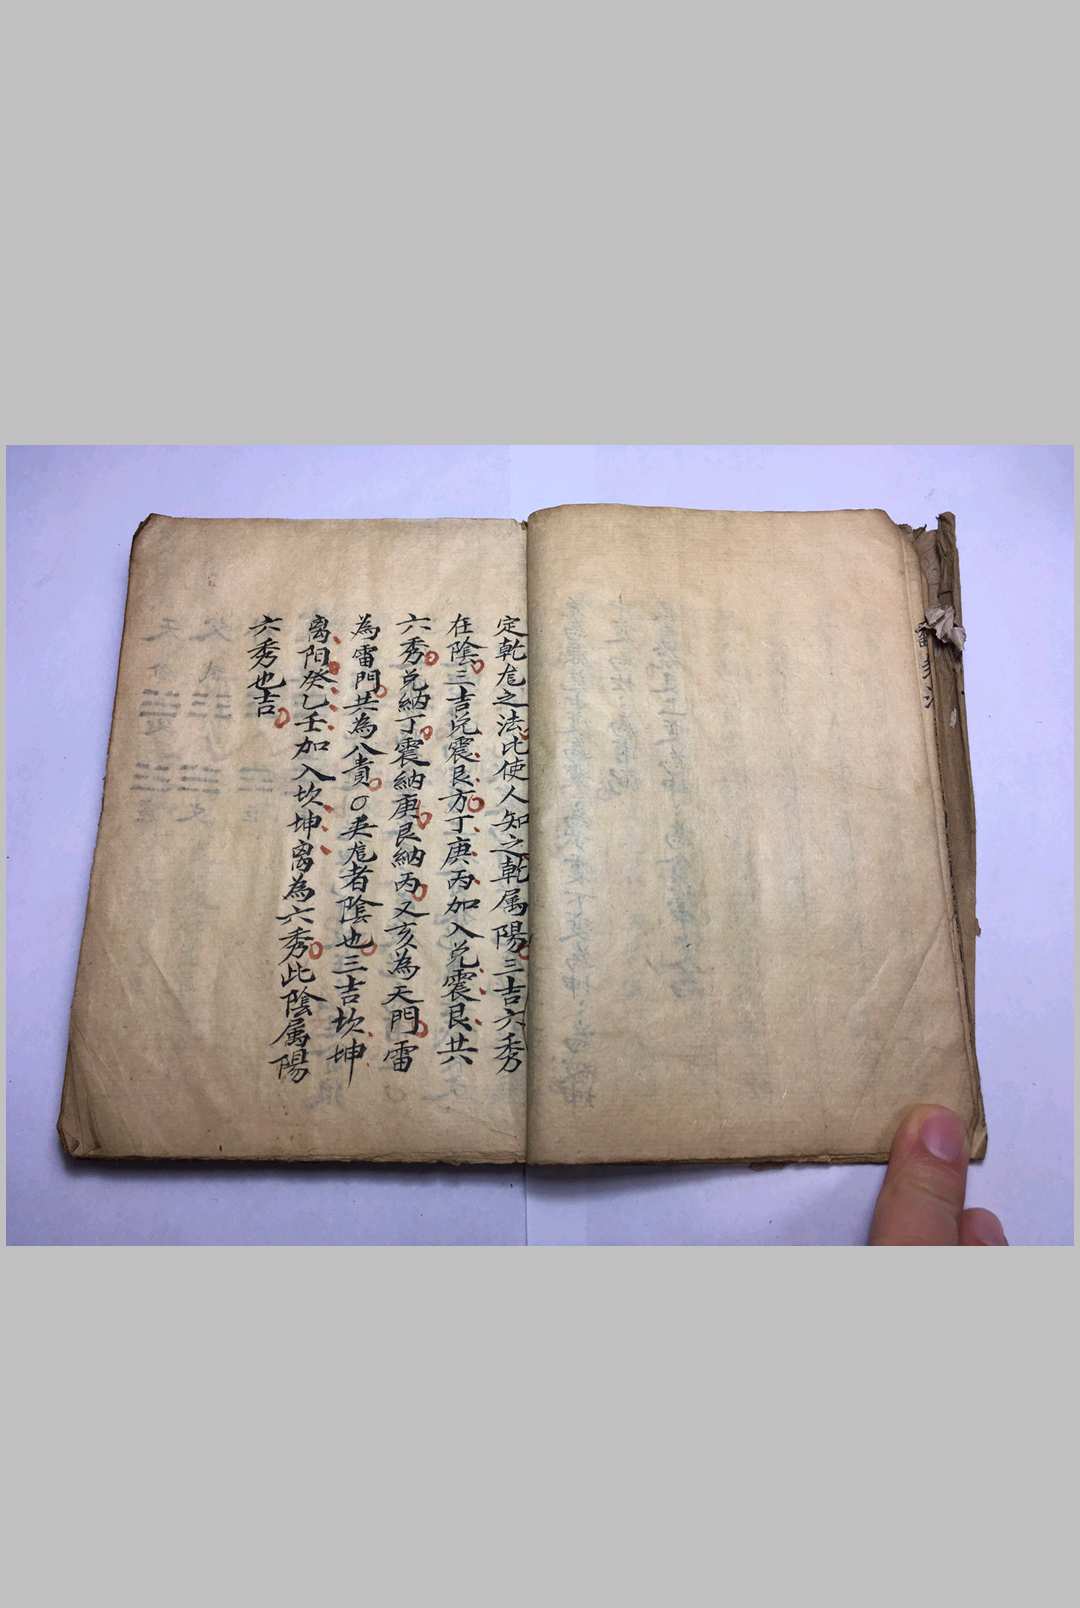 定乾尨之法比使人知之乾属陽三吉六秀
在陰三吉兑震艮方丁庚丙加入兑震艮共
六秀兑納丁震納庚艮納丙又亥為天門雷
為雷門共為八貴○美尨者陰也三吉坎坤
离阳癸乙壬加入坎坤离為六秀此陰属陽
六秀也吉